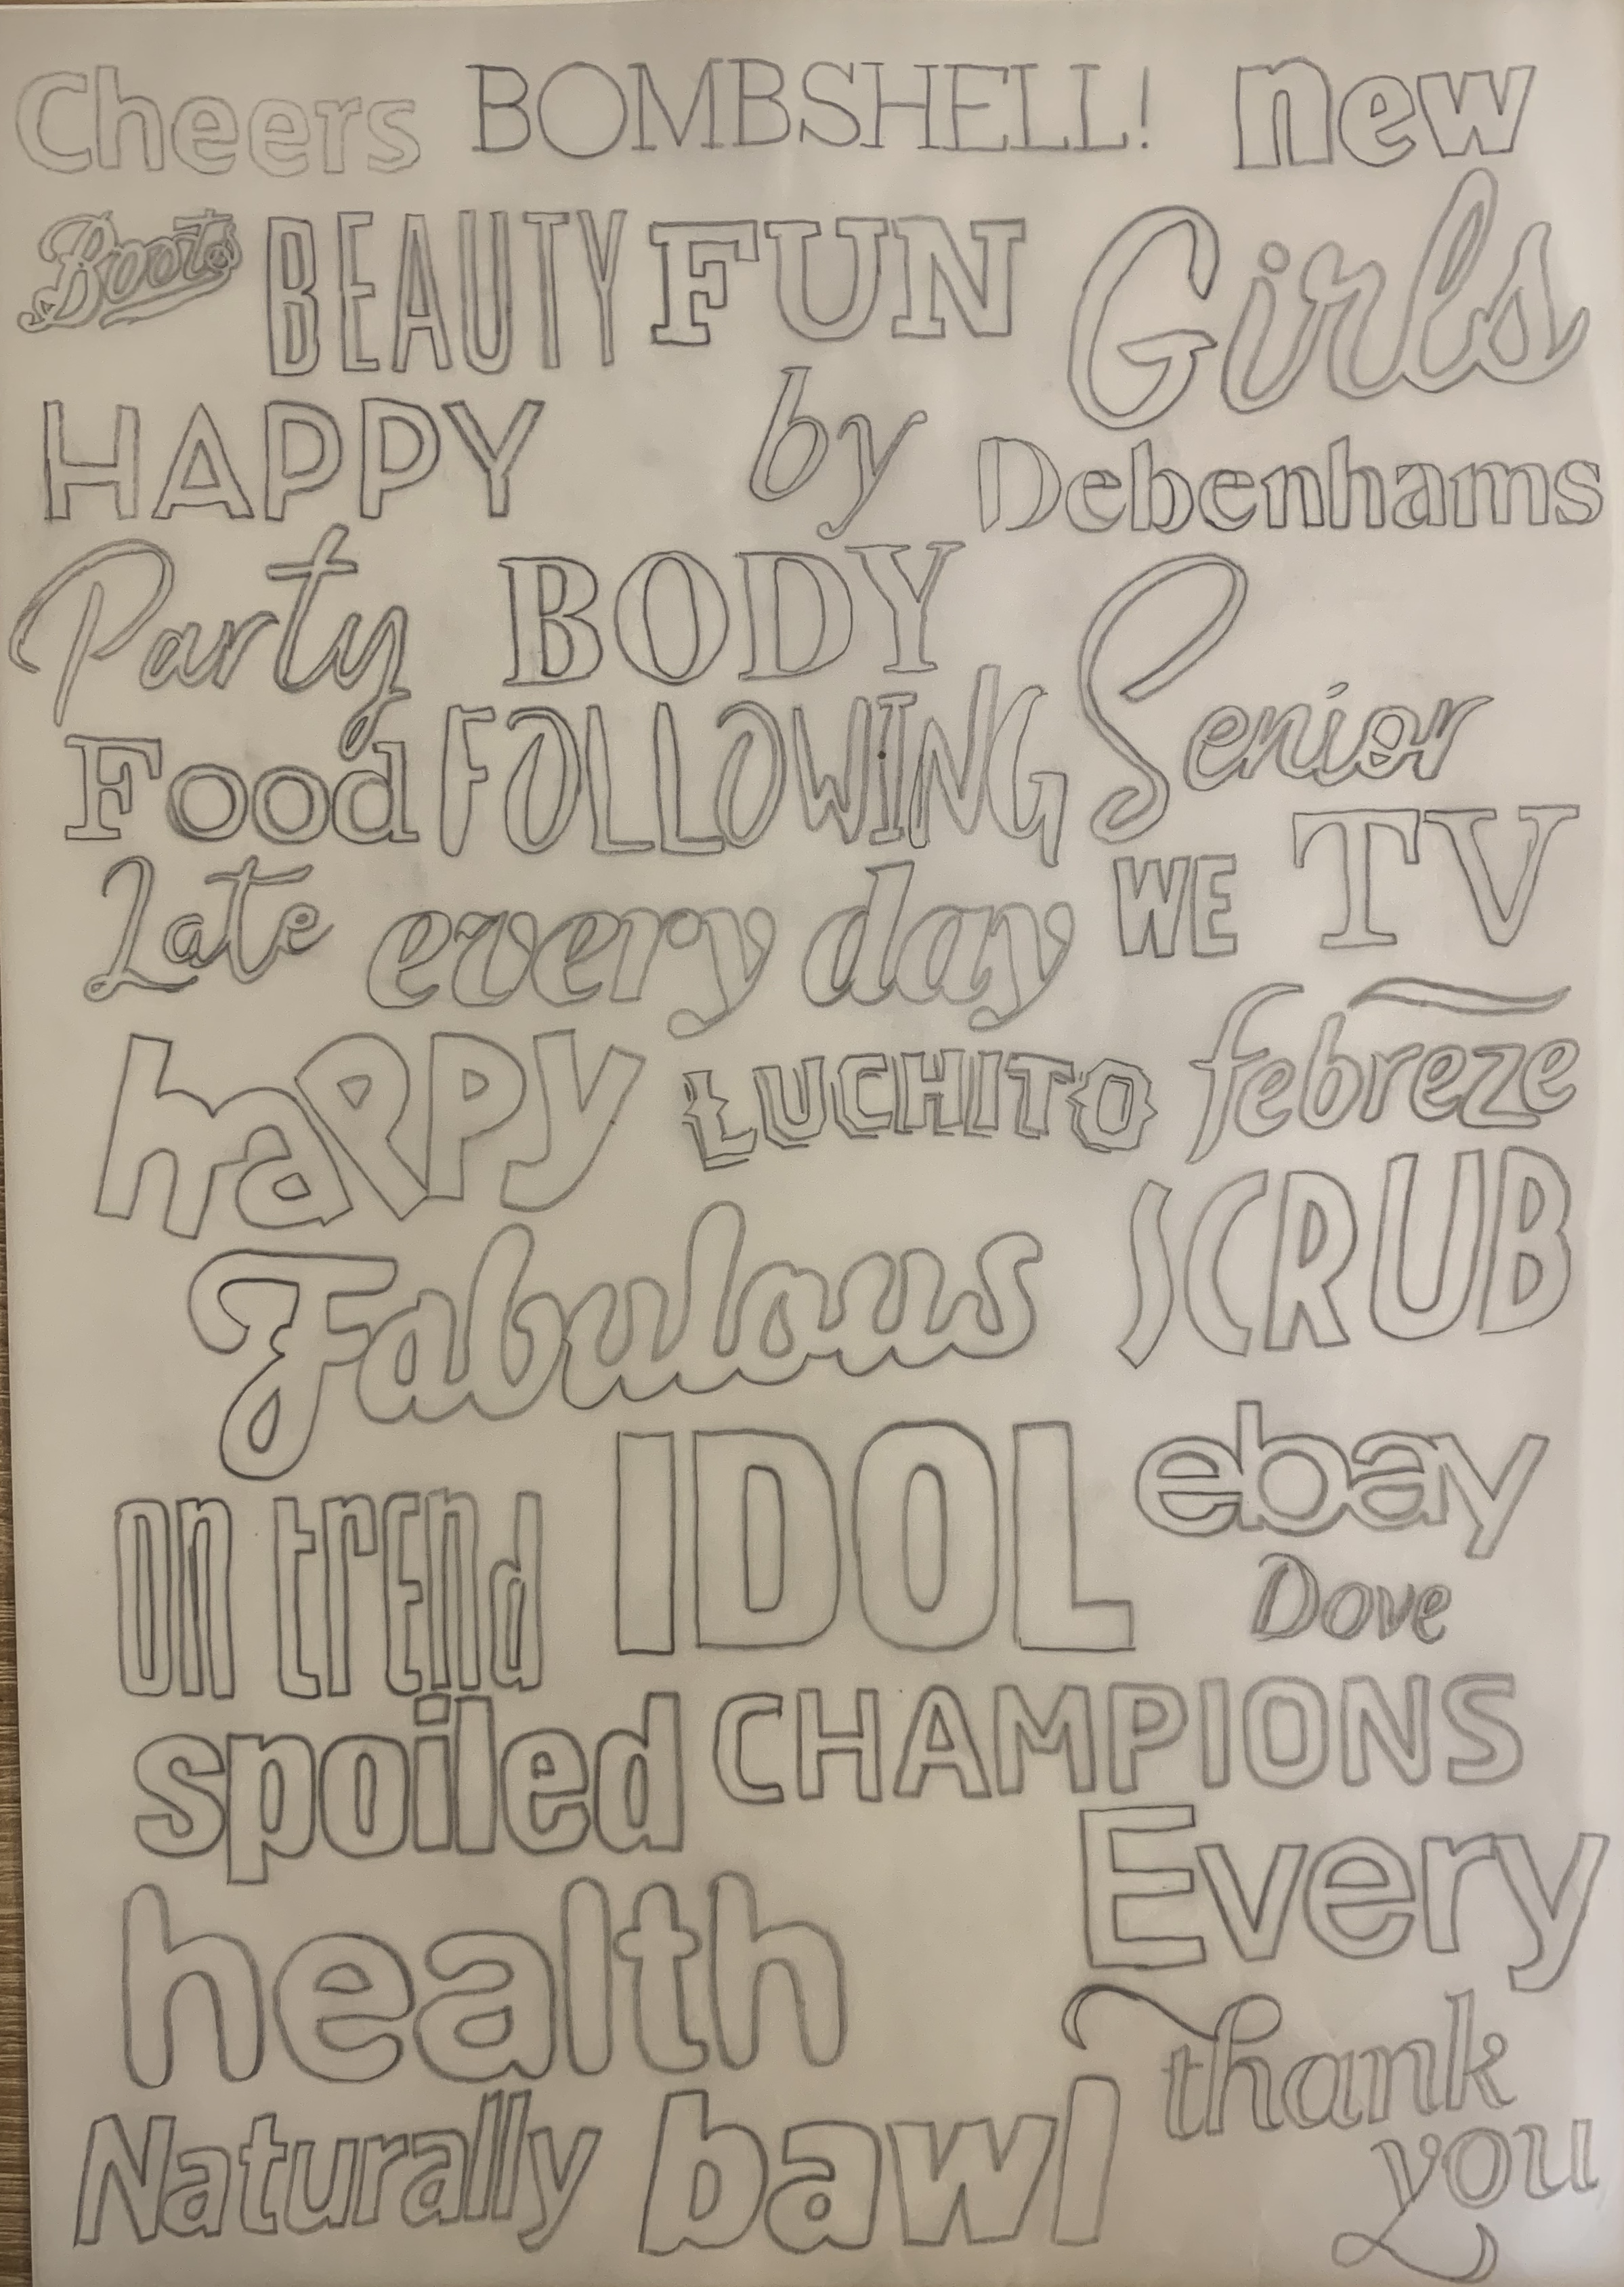 Cheers BOMBSHELL! new
Boots BEAUTY FUN Girls
HAPPY by Debenhams
Party BODY Senior
Food FOLLOWING
Late every day WE TV
haPPY LUCHITO febreze
Fabulous SCRUB
on trEnd IDOL ebay
Dove
spoiled CHAMPIONS
health Every
Naturally bawl thank
you